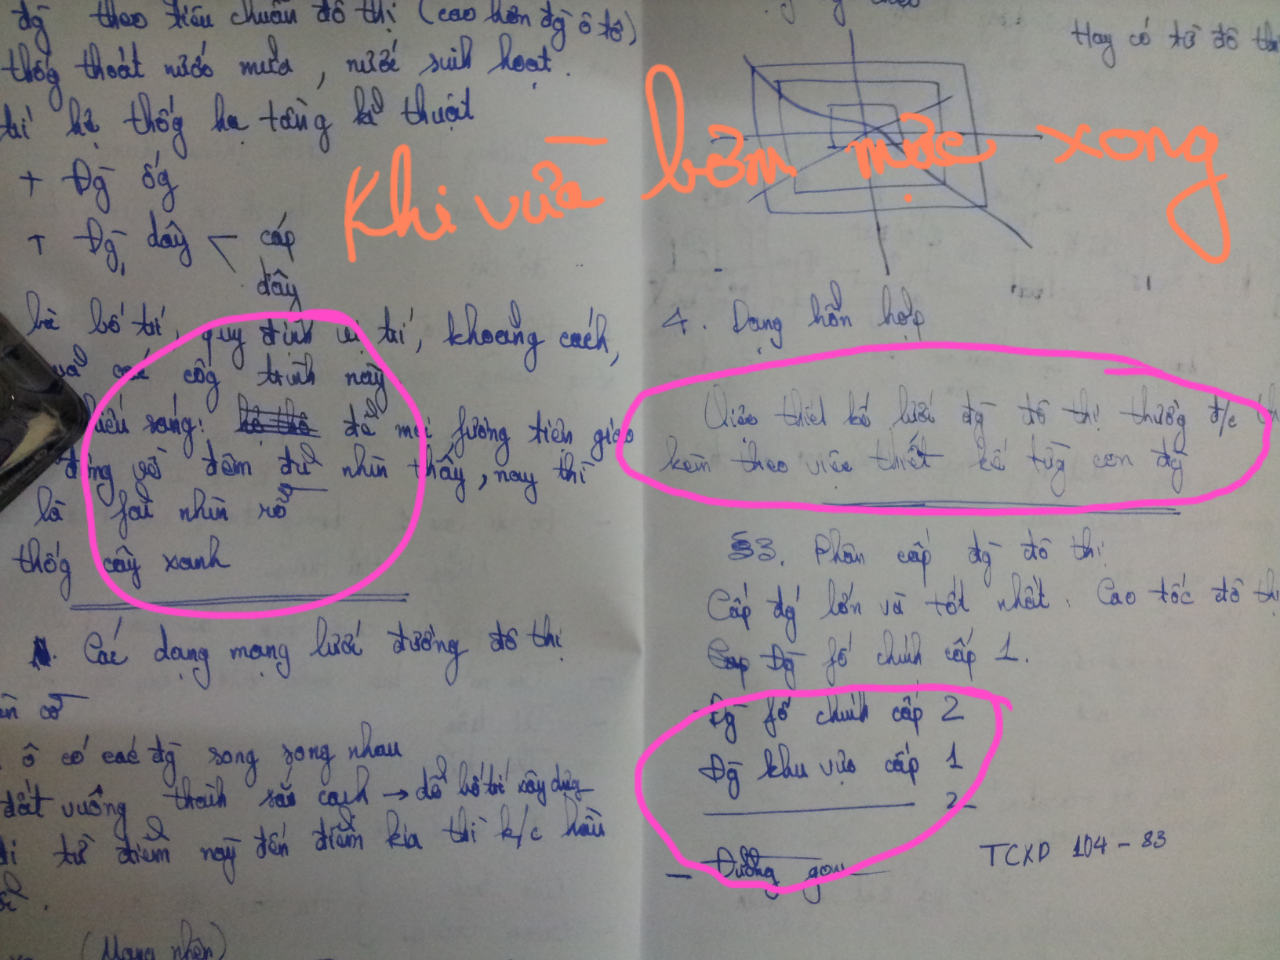 đg theo tiêu chuẩn đô thị (cao hơn đg ô tô)
thống thoát nước mưa, nước sinh hoạt.
trí hệ thống hạ tầng kĩ thuật
+ Đg ống
+ Đg dây cáp
dây
bố trí, quy định vị trí, khoảng cách,
các công trình này
chiếu sáng: để mọi fương tiện giao
đêm để nhìn thấy, nay thì
là fải nhìn rõ
thống cây xanh
Các dạng mạng lưới đường đô thị
cờ
ô có các đg song song nhau
đất vuông thành sắc cạnh → dễ bố trí xây dựng
đi từ điểm này đến điểm kia thì k/c
(Mạng nhện)
Khi vừa bơm mực xong
Hay có từ đô thị
4. Dạng hỗn hợp
Việc thiết kế lưới đg đô thị thường đ/c
kèm theo việc thiết kế từng con đg
§3. Phân cấp đg đô thị
Cấp đg lớn và tốt nhất. Cao tốc đô thị
Đg fố chính cấp 1.
Đg fố chính cấp 2
Đg khu vực cấp 1
2
TCXD 104 - 83
- Đường gom